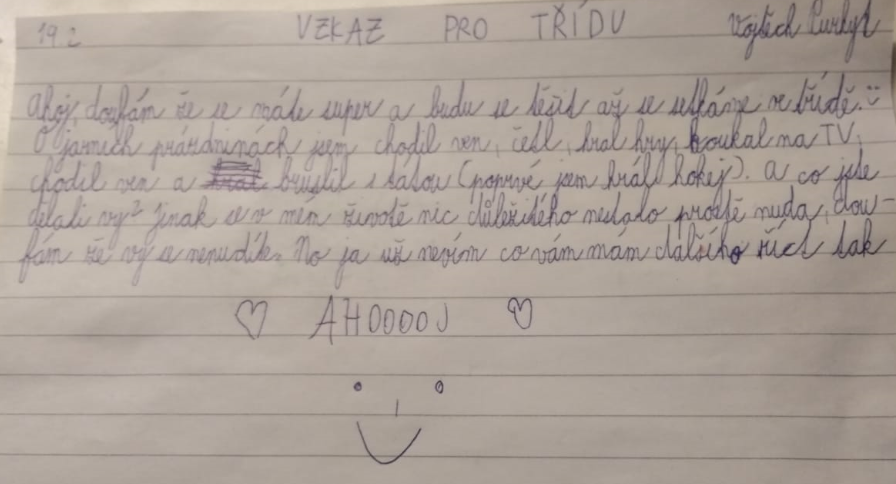 19.2 VZKAZ PRO TŘÍDU Vojtěch
Ahoj, doufám že se máte super a budu se těšit až se setkáme ve třídě. :)
O jarních prázdninách jsem chodil ven, četl, hral hry, koukal na TV,
chodil ven a bruslil s tátou (poprvé jsem hrál hokej). A co jste
dělali vy? Jinak se v mém životě nic důležitého nestalo prostě nuda, dou-
fám že vy se nenudíte. No ja už nevím co vám mám dalšího říct tak
AHOOOOJ